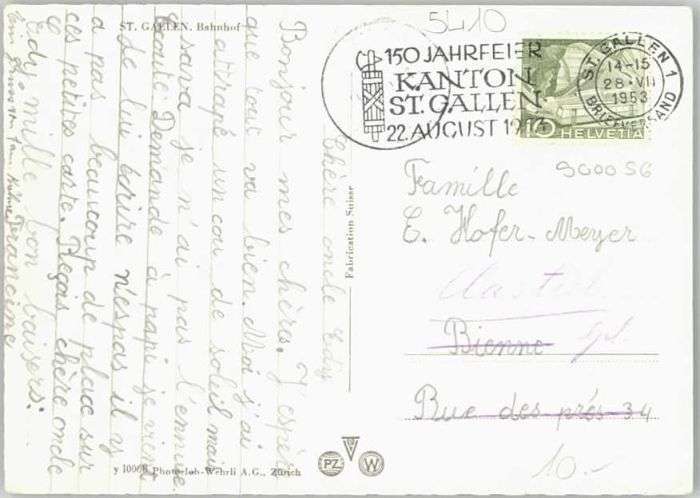 ST. GALLEN. Bahnhof
5410
150 JAHRFEIER
KANTON
ST. GALLEN
22. AUGUST 1953
ST. GALLEN 1
14-15
28 VII
1953
BRIEFVERSAND
10 HELVETIA
9000 SG
Famille
E. Hofer-Meyer
Bienne
Rue des prés 34
10.-
Chère oncle Edy
Bonjour mes chères. J'espère
que tout va bien. Moi j'ai
attrapé un cou de soleil mais
sara je n'ai pas l'ennuie
écoute Demande à papi je vient
de lui écrire n'espas il y
a pas beaucoup de place sur
ces petites carte. Reçais chère oncle
Edy mille bon baisers:
Francine
Fabrication Suisse
PZ
W
y 10068 Photoglob-Wehrli A.G., Zürich